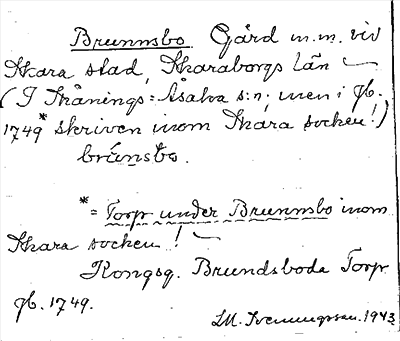 Brunnsbo Gård m.m. vid
Skara stad, Skaraborgs län
(I Skånings = Åsaka s:n; men i jb.
1749* skriven inom Skara socken!)
brùnsbo.
* = Torp under Brunnsbo inom
Skara socken!
Kongsg. Brundsboda Torp
jb. 1749.
1943